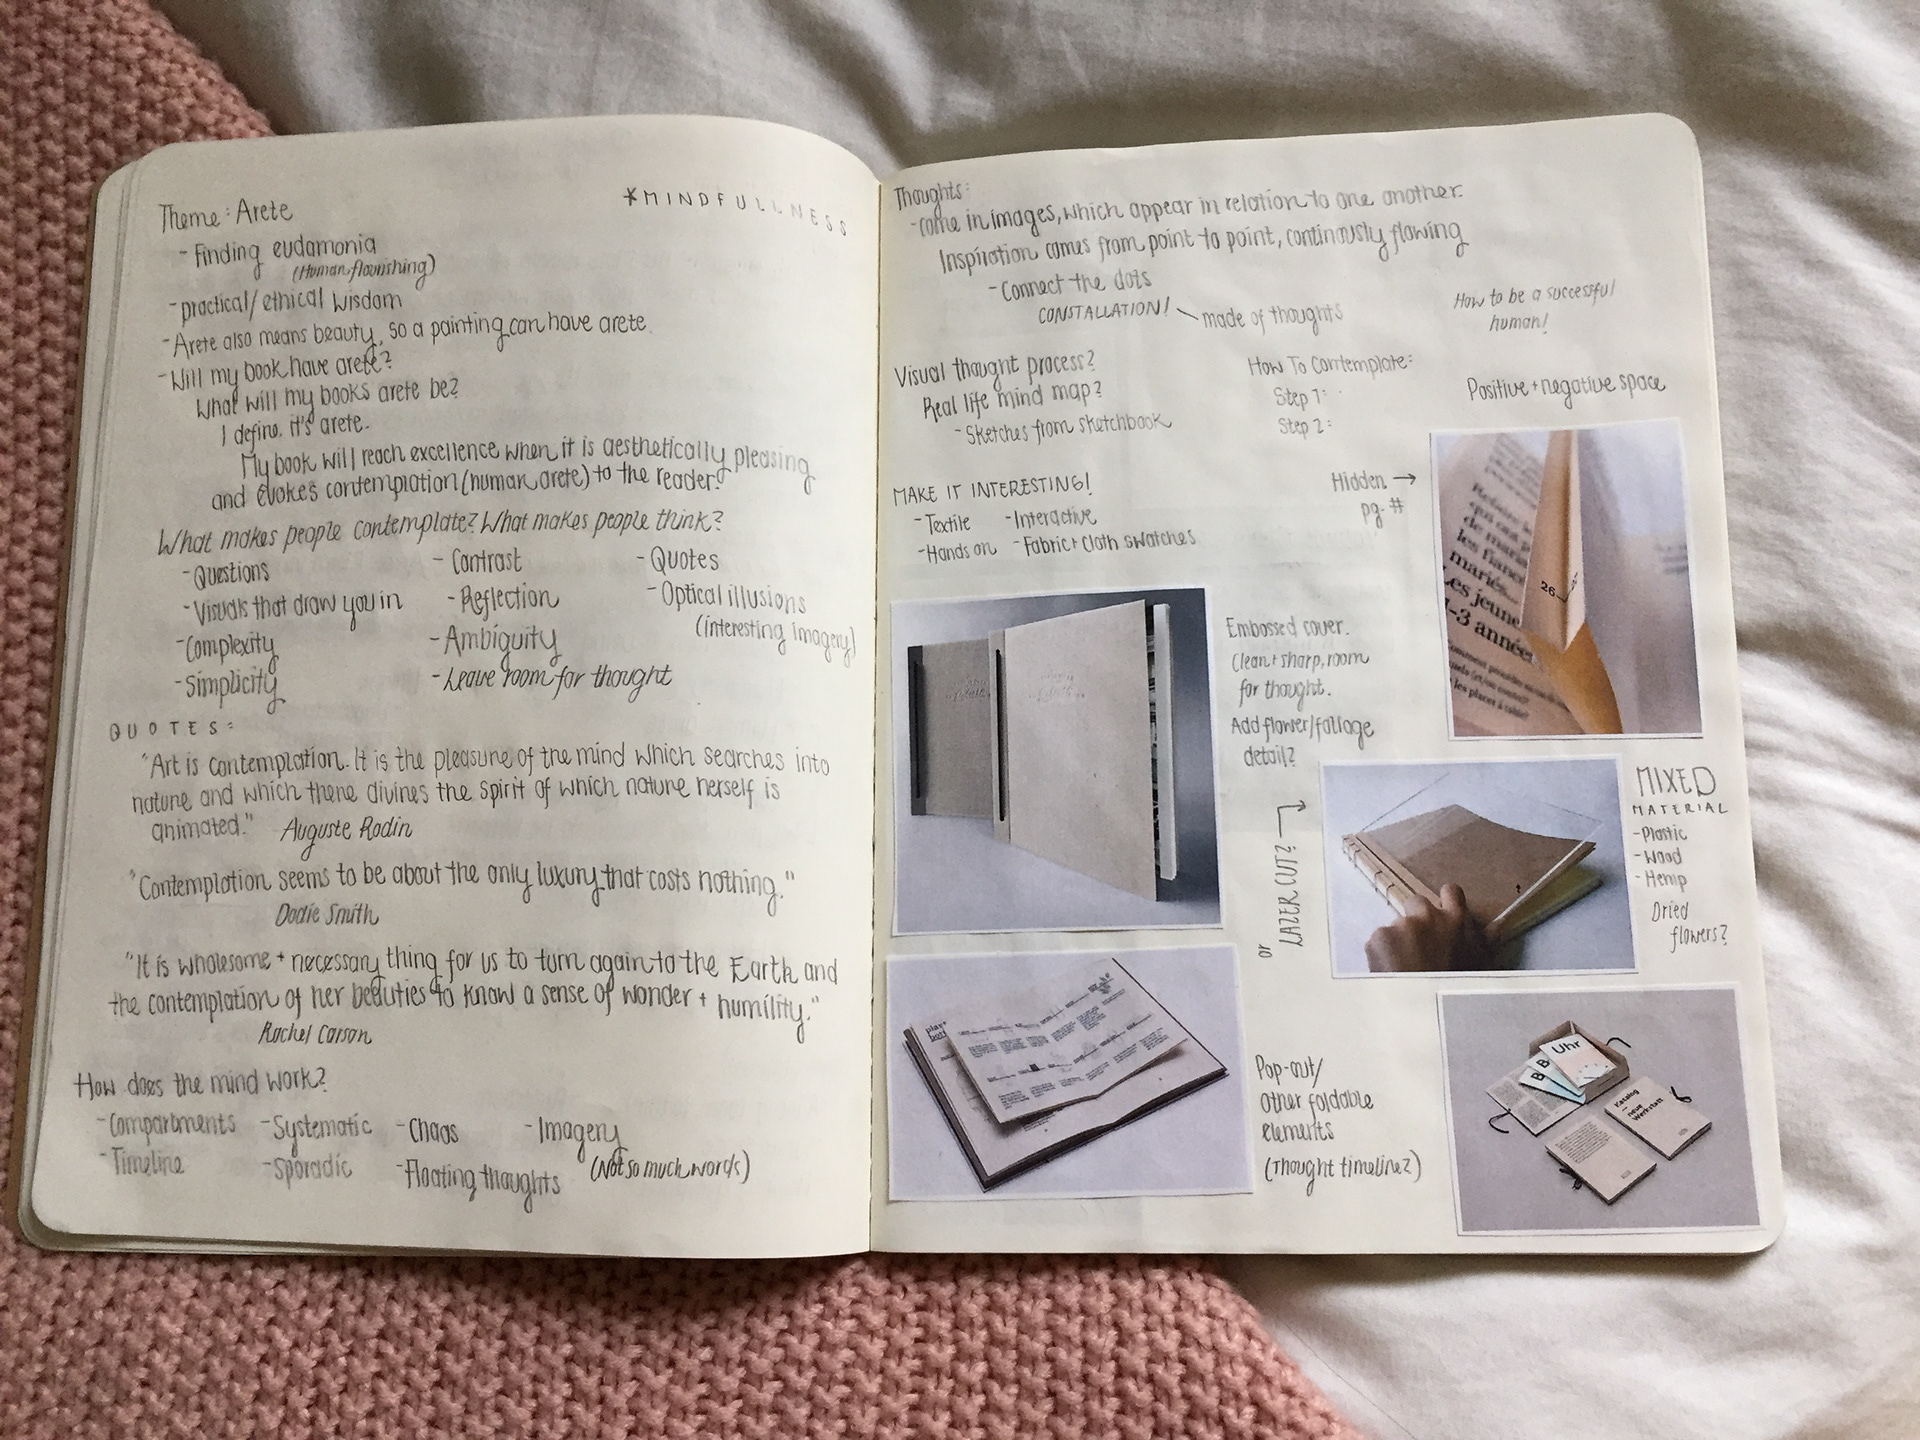 Theme: Arete
*MINDFULLNESS
- Finding eudamonia
(Human flourishing)
- practical/ethical wisdom
- Arete also means beauty, so a painting can have arete.
- Will my book have arete?
What will my books arete be?
I define it's arete.
My book will reach excellence when it is aesthetically pleasing
and evokes contemplation (human arete) to the reader.
What makes people contemplate? What makes people think?
- Questions
- Visuals that draw you in
- Complexity
- Simplicity
- Contrast
- Reflection
- Ambiguity
- Leave room for thought
- Quotes
- Optical illusions
(interesting imagery)
QUOTES:
"Art is contemplation. It is the pleasure of the mind which searches into
nature and which there divines the spirit of which nature herself is
animated." Auguste Rodin
"Contemplation seems to be about the only luxury that costs nothing."
Dodie Smith
"It is wholesome + necessary thing for us to turn again to the Earth and
the contemplation of her beauties to know a sense of wonder + humility."
Rachel Carson
How does the mind work?
- Compartments
- Timeline
- Systematic
- Sporadic
- Chaos
- Floating thoughts
- Imagery
(Not so much words)
Thoughts:
- come in images, which appear in relation to one another.
Inspiration comes from point to point, continously flowing
- Connect the dots
CONSTALLATION! made of thoughts
How to be a successful
human!
Visual thought process?
Real life mind map?
- Sketches from sketchbook
How To Contemplate:
Step 1:
Step 2:
Positive + negative space
MAKE IT INTERESTING!
- Textile
- Interactive
- Hands on
- Fabric + Cloth swatches
Hidden →
pg. #
qui ont p
de mari
les fiancé
mariés...
Les jeune
1-3 année
26
Embossed cover.
Clean + sharp, room
for thought.
Add flower/foliage
detail?
or LAZER CUT?
MIXED
MATERIAL
- Plastic
- Wood
- Hemp
Dried
flowers?
Pop-out/
other foldable
elements
(Thought timeline?)
Uhr
B
B
Katalog
neue
Werkstatt